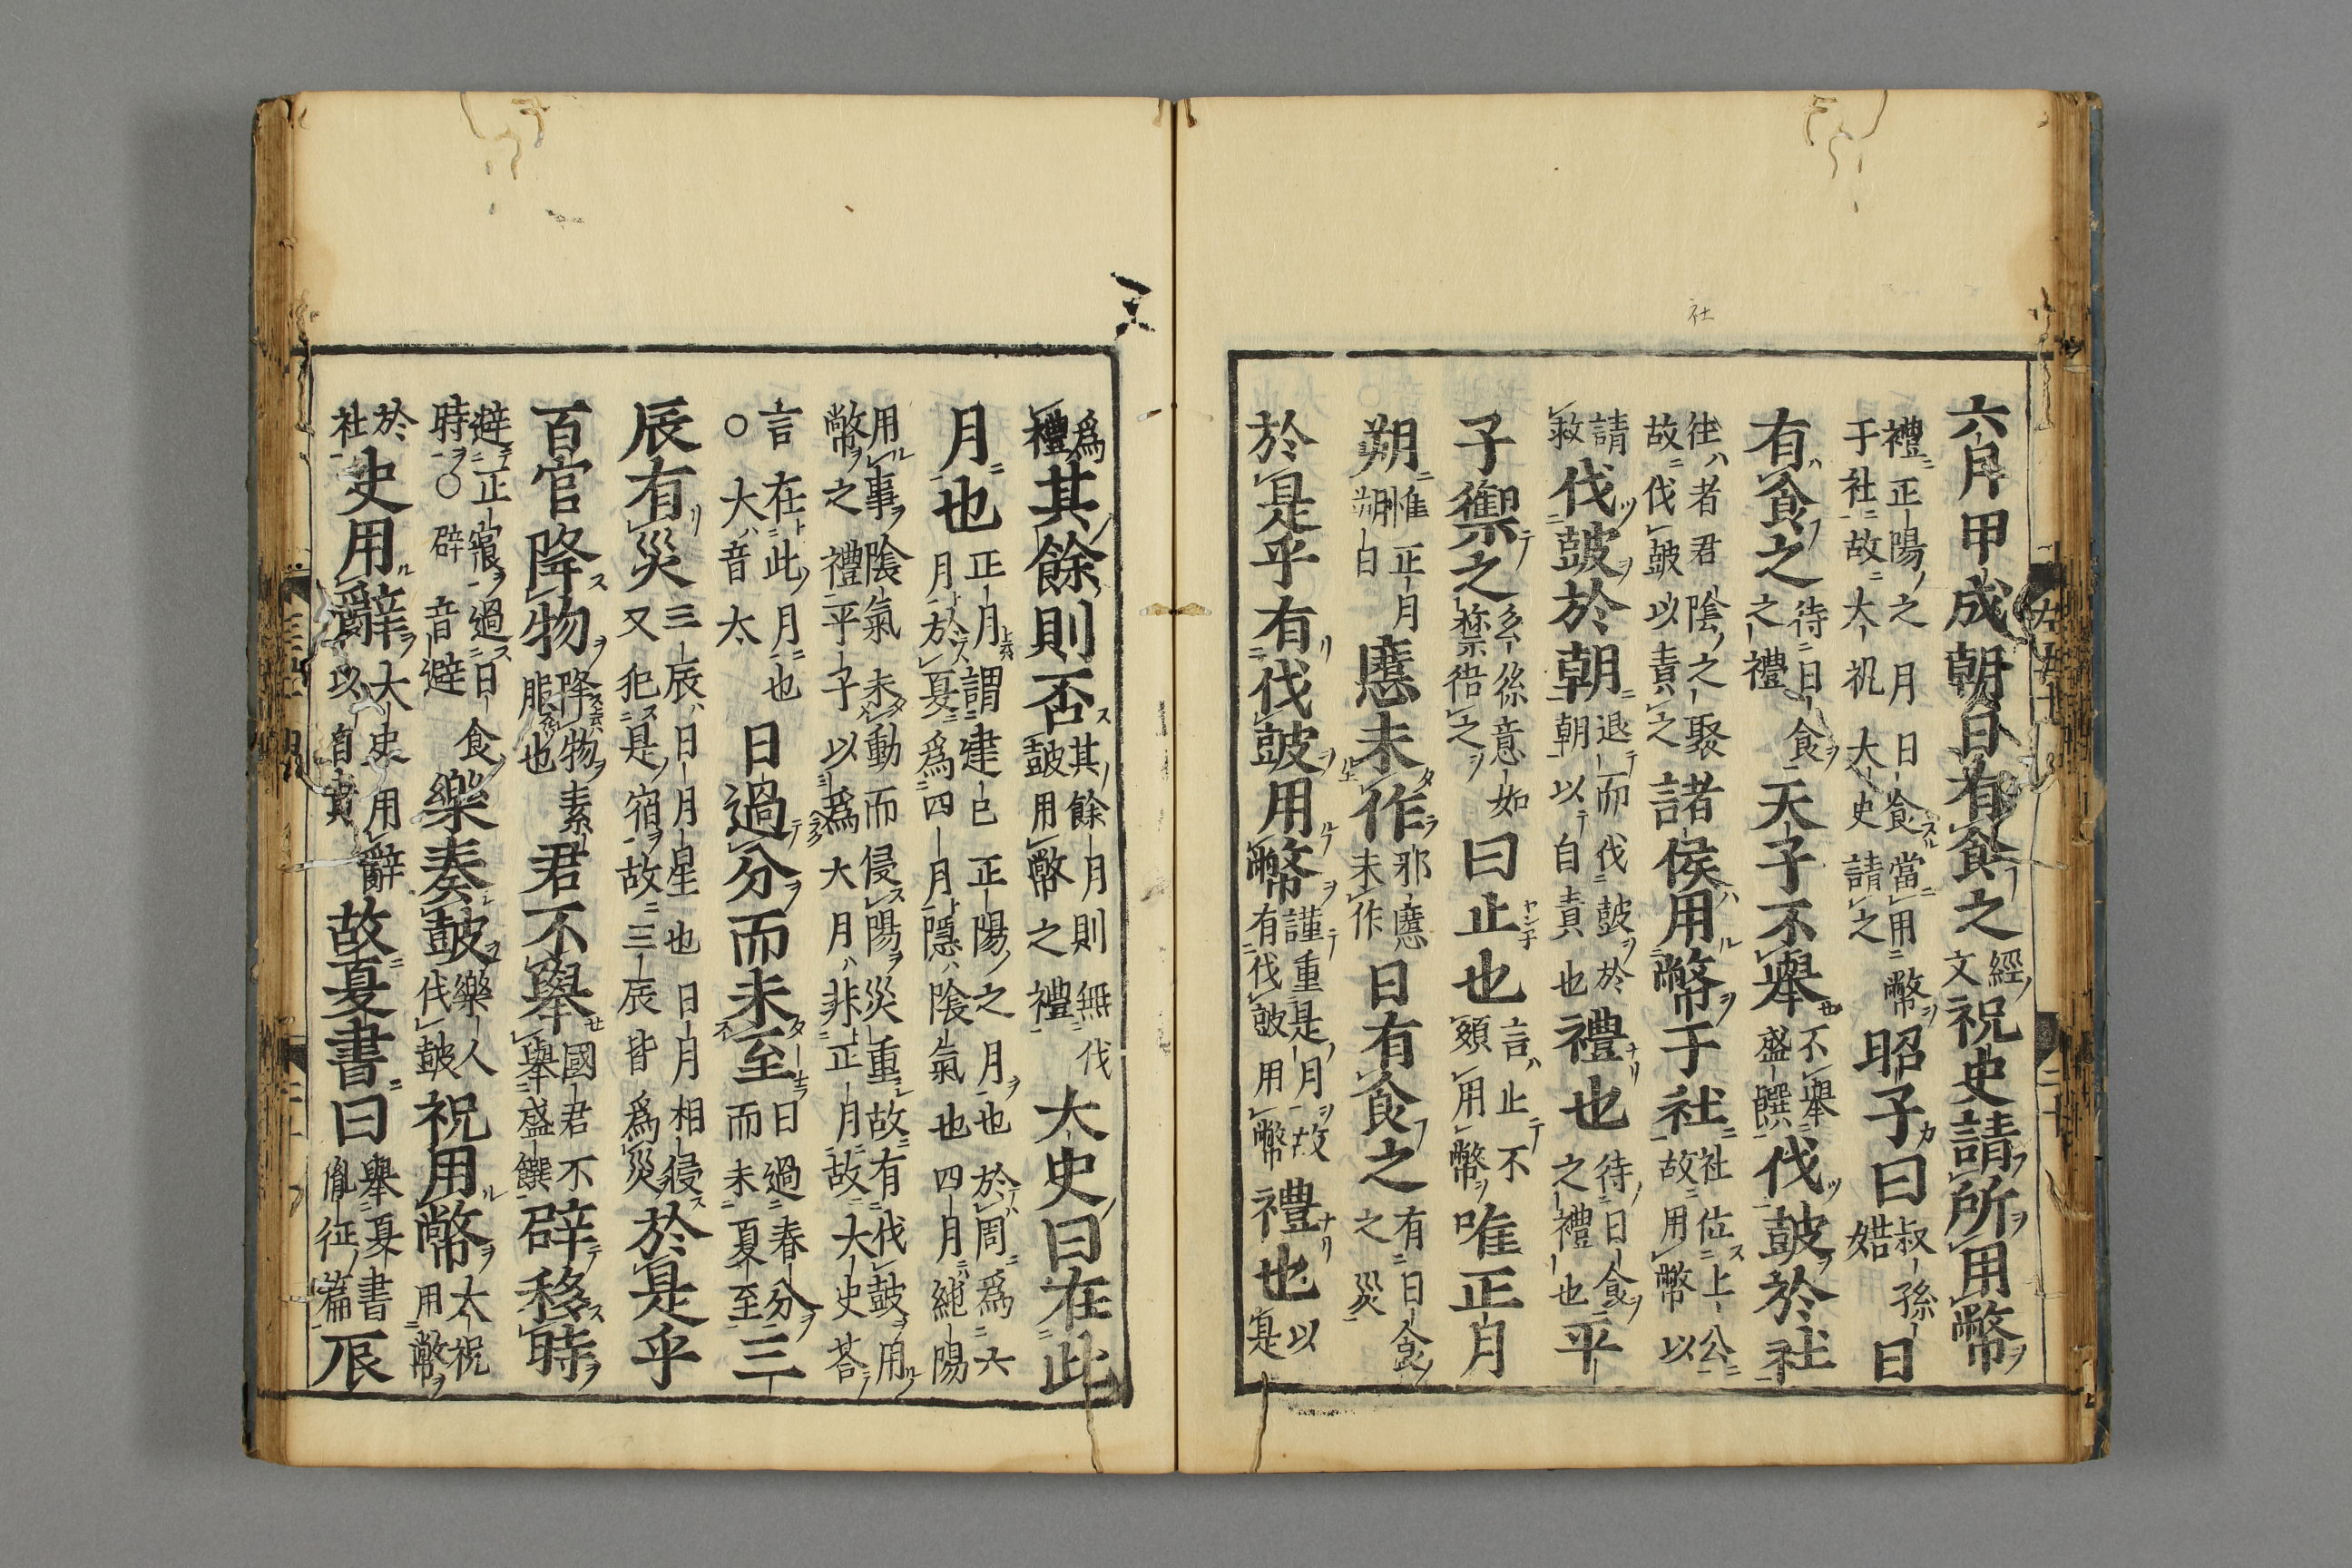 社
六月甲戌朝日有食之經文祝史請所用幣
禮正陽之月日食當用幣于社故大祝大史請之昭子曰叔孫婼日
有食之待日食之禮天子不舉不舉盛饌伐鼓於社
往者君陰之聚故伐鼓以責之諸侯用幣于社社位上公故用幣以
請救伐鼓於朝退而伐鼓於朝以自責也禮也待日食之禮也平
子禦之季孫意如禁禦之曰止也言止不須用幣唯正月
朔惟正月朔日慝未作邪慝未作日有食之有日食之災
於是乎有伐鼓用幣謹重是月故有伐鼓用幣禮也以是
爲禮其餘則否其餘月則無伐鼓用幣之禮大史曰在此
月也正月謂建巳正陽之月也於周爲六月於夏爲四月隱陰氣也四月純陽
用事陰氣未動而侵陽災重故有伐鼓用幣之禮平子以爲大月非正月故大史荅
言在此月也○大音太日過分而未至日過春分而未夏至三
辰有災三辰日月星也日月相侵又犯是宿故三辰皆爲災於是乎
百官降物降物素服也君不舉國君不舉盛饌辟移時
避正寢過日食時○辟音避樂奏鼓樂人伐鼓祝用幣太祝用幣
於社史用辭大史用辭以自責故夏書曰舉夏書胤征篇辰